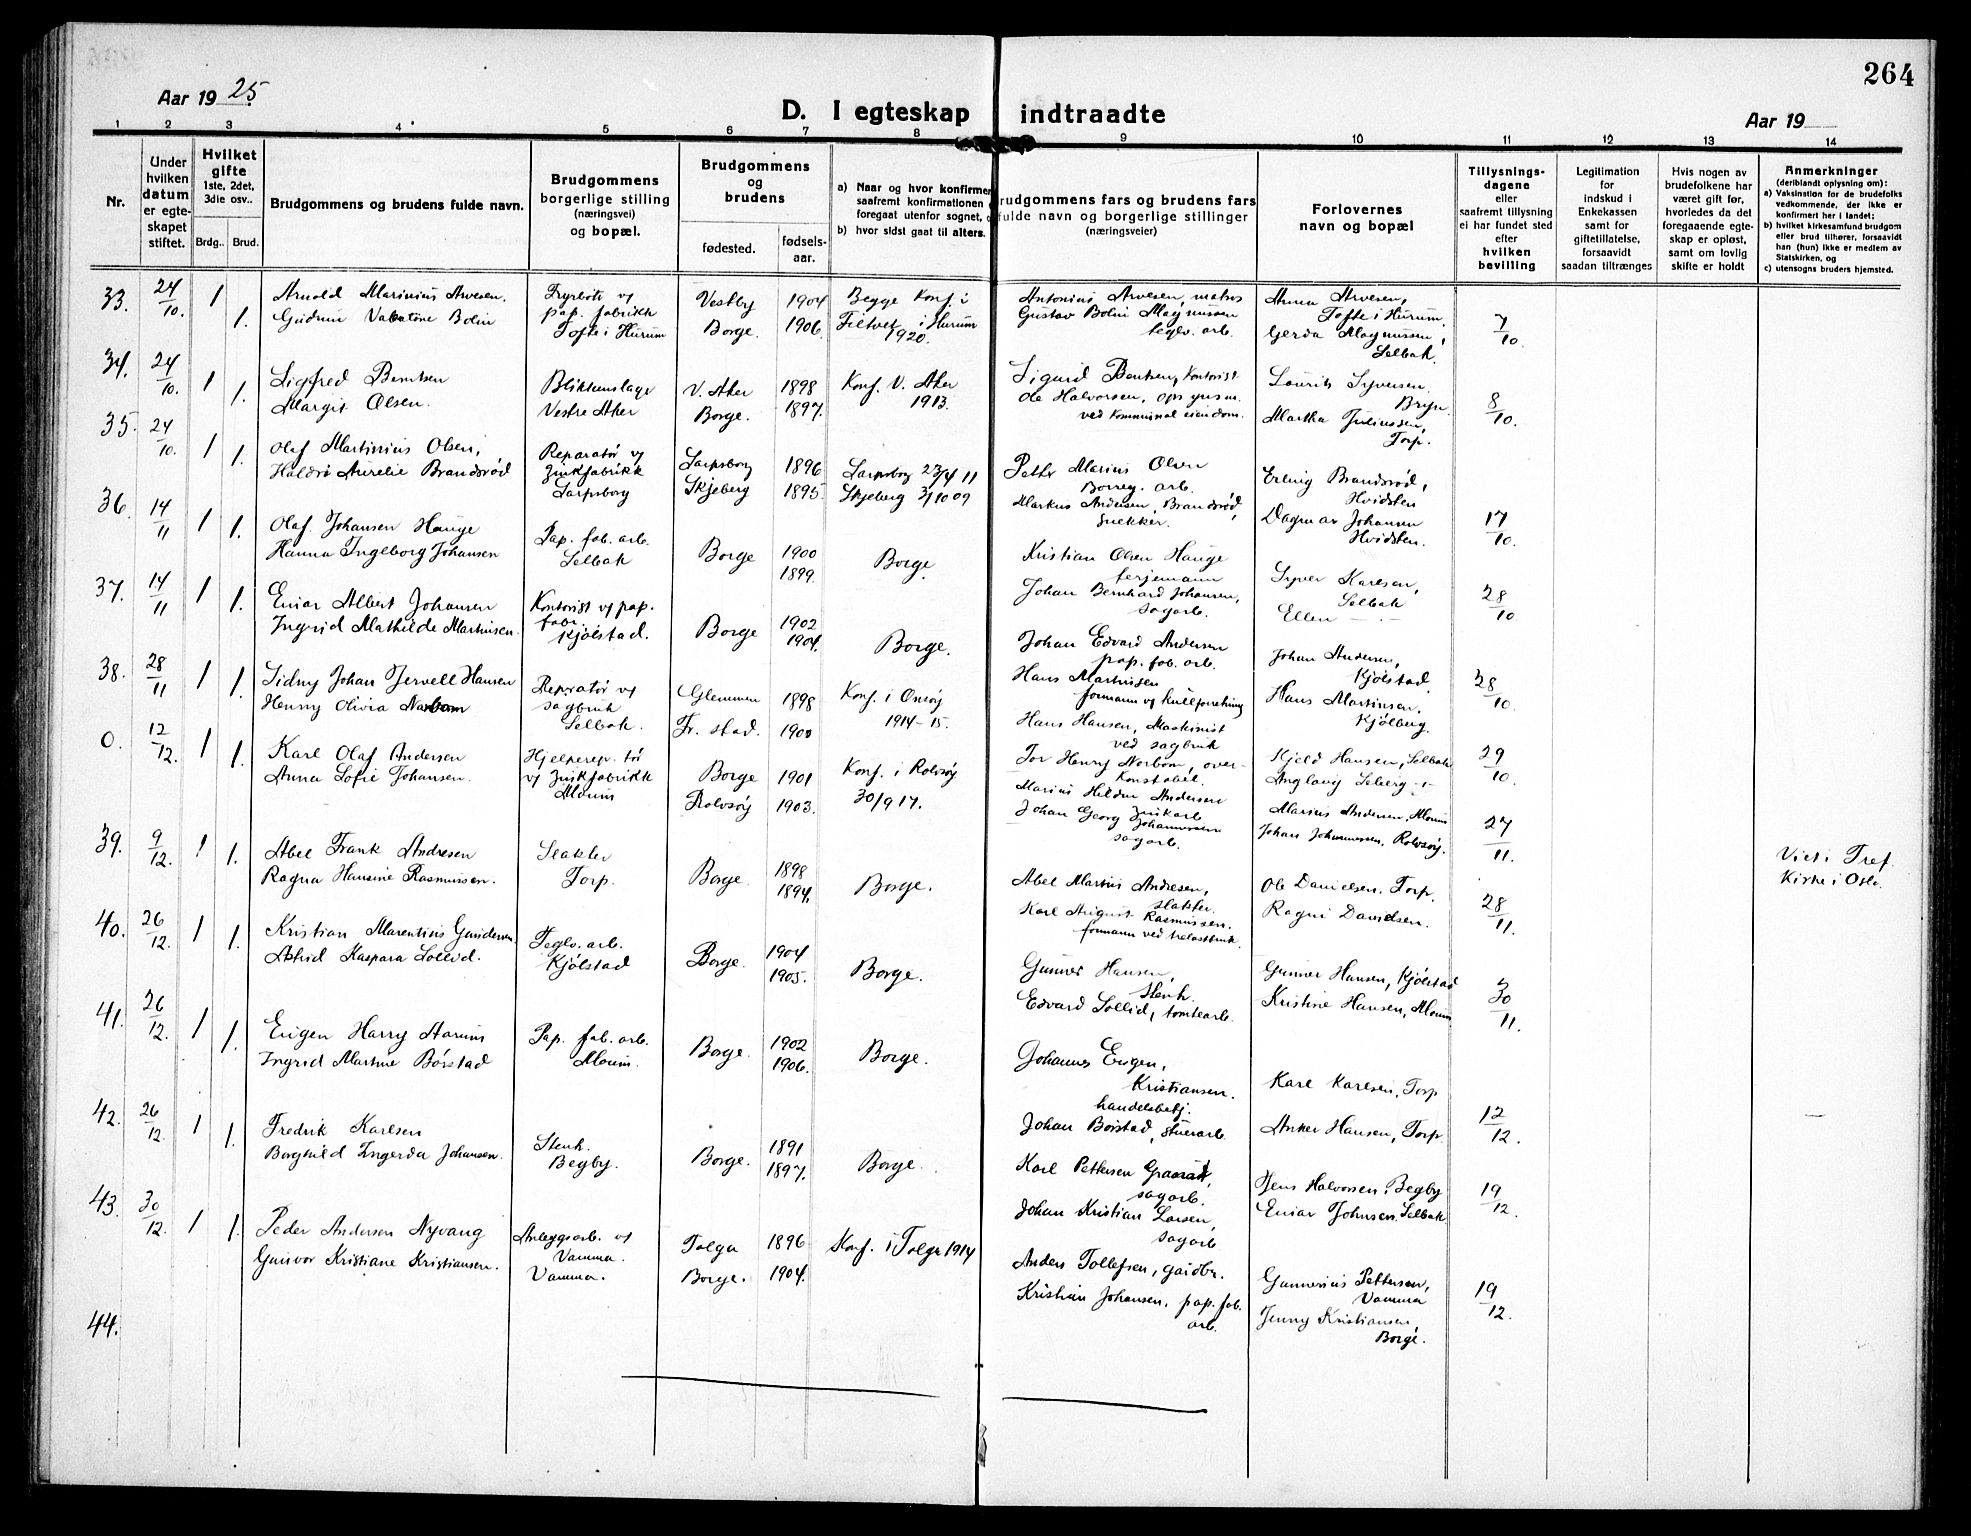 264
Aar 1925
D. I egteskap indtraadte
Aar 19
1 2 3 4 5 6 7 8 9 10 11 12 13 14
Nr.
Under
hvilken
datum
er egte-
skapet
stiftet.
Hvilket
gifte
1ste, 2det,
3die osv..
Brdg.. Brud.
Brudgommens og brudens fulde navn.
Brudgommens
borgerlige stilling
(næringsvei)
og bopæl.
Brudgommens
og
brudens
fødested.
fødsels-
aar.
a) Naar og hvor konfirmer
saafremt konfirmationen
foregaat utenfor sognet,
b) hvor sidst gaat til alters.
rudgommens fars og brudens fars
fulde navn og borgerlige stillinger
(næringsveier)
Forlovernes
navn og bopæl
Tillysnings-
dagene
eller
saafremt tillysning
ei har fundet sted
efter
hvilken
bevilling
Legitimation
for
indskud i
Enkekassen
samt for
giftetillatelse,
forsaavidt
saadan tiltrænges
Hvis nogen av
brudefolkene har
været gift før,
hvorledes da det
foregaaende egte-
skap er opløst,
samt om lovlig
skifte er holdt
Anmerkninger
(deriblandt oplysning om):
a) Vaksination for de brudefolks
vedkommende, der ikke er
konfirmert her i landet;
b) hvilket kirkesamfund brudgom
eller brud tilhører, forsaavidt
han (hun) ikke er medlem av
Statskirken, og
c) utensogns bruders hjemsted.
33. 24/10. 1 1.
Arnold Marinius Arvesen.
Gudrun Bolin
pap. fabrikk
Tofte i Hurum
Vestby 1904
Borge. 1906.
Begge Konf. i
Filtvet i Hurum
1920.
Antonius Arvesen, matros
Gustav Bolin Magnussen
teglv. arb.
Anna Arvesen,
Tofte i Hurum.
Gerda Magnussen,
Selbak.
7/10.
34. 24/10. 1 1.
Sigfred Berntsen
Margit Olsen.
Vestre Aker
V. Aker 1898
Borge. 1897.
Konf. V. Aker
1913.
Sigurd Bentsen, Kontorist
Ole Halvorsen,
ved kommunal eiendom.
Laurits Syversen
Bryn.
Martha Juliussen,
Torp.
8/10.
35. 24/10. 1 1.
Olaf Martinius Olsen,
Aurelie Brandsrød
Reparatør v/
Zinkfabrikk
Sarpsborg
Sarpsborg 1896
Skjeberg 1895.
Sarpsborg 23/4 11
Skjeberg 3/10 09
Petter Marius Olsen
Borreg. arb.
Markus Andersen, Brandsrød,
snekker.
Erling Brandsrød,
Hvidsten
Dagmar Johansen
Hvidsten.
17/10.
36. 14/11 1 1.
Olaf Johansen Hauge
Hanna Ingeborg Johansen
Pap. fab. arb.
Selbak
Borge 1900
1899.
Borge.
Kristian Olsen Hauge
ferjemann
Johan Bernhard Johansen,
sagarb.
Syver Karlsen,
Selbak
Ellen — . -
28/10.
37. 14/11 1 1.
Einar Albert Johansen
Ingrid Mathilde Martinsen.
Kontorist v/ pap.
fabr.
Kjölstad.
Borge 1902
1904.
Borge.
Johan Edvard Andersen
pap. fab. arb.
Hans Martinsen
formann v/ kullforretning
Johan Andersen,
Kjölstad.
Hans Martinsen,
Kjölberg.
28/10.
38. 28/11 1 1.
Sidny Johan Jervell Hansen
Henny Olivia Norbom
Reparatør v/
sagbruk
Selbak.
Glemmen 1898
Fr. stad. 1900
Konf. i Onsøy
1914-15.
Hans Hansen, Maskinist
ved sagbruk
Tor Henry Norbom, over-
konstabel.
Kjeld Hansen, Selbak
29/10.
0. 12/12. 1 1.
Karl Olaf Andersen
Anna Sofie Johansen.
Hjelperep. tør
v/ Zinkfabrikk
Moum
Borge 1901
Rolvsøy 1903.
Konf. i Rolvsøy
30/9 17.
Marius Hilder Andersen
Zinkarb
Johan Georg Johannessen
sagarb.
Marius Andersen, Moum
Johan Johannessen, Rolvsøy.
27/11.
39. 9/12. 1 1.
Abel Frank Andresen
Ragna Hansine Rasmussen.
Slakter
Torp.
Borge. 1898
1894.
Borge.
Abel Martius Andresen,
slakter.
Karl August Rasmussen.
formann ved trelastbruk.
Ole Danielsen, Torp.
Ragni Danielsen.
28/11.
Viet i Tref.
Kirke i Oslo.
40. 26/12. 1 1.
Kristian Marentius Gundersen
Astrid Kaspara Sollid.
Teglv. arb.
Kjölstad
Borge. 1904
1905.
Borge.
Gunner Hansen,
Stenh.
Edvard Sollid, tomtearb.
Gunner Hansen, Kjölstad
Kristine Hansen, Moum
30/11.
41. 26/12. 1 1.
Eugen Harry Aarum
Ingrid Martine Börstad
Pap. fab. arb.
Moum.
Borge. 1902
1906.
Borge.
Johannes Eugen,
Kristiansen.
handelsbetj.
Johan Borstad, stuerarb.
Karl Karlsen, Torp
Anker Hansen, Torp.
12/12.
42. 26/12. 1 1.
Fredrik Karlsen
Borghild Ingerda Johansen.
Stenh.
Begby.
Borge. 1891
1897.
Borge.
Karl Pettersen
sagarb.
Johan Kristian Larsen,
sagarb.
Jens Halvorsen, Begby
Einar Johnsen, Selbak
19/12.
43. 30/12. 1 1.
Peder Andersen Nyvang
Gunvor Kristiane Kristiansen.
Anleggsarb. v/
Vamma.
Vamma.
Tolga 1896
Borge. 1904.
Konf. i Tolga 1914
Anders Tollefsen, gaardbr.
Kristian Johansen, pap. fab.
arb.
Gunnerius Pettersen,
Vamma
Jenny Kristiansen,
Borge.
19/12.
44.